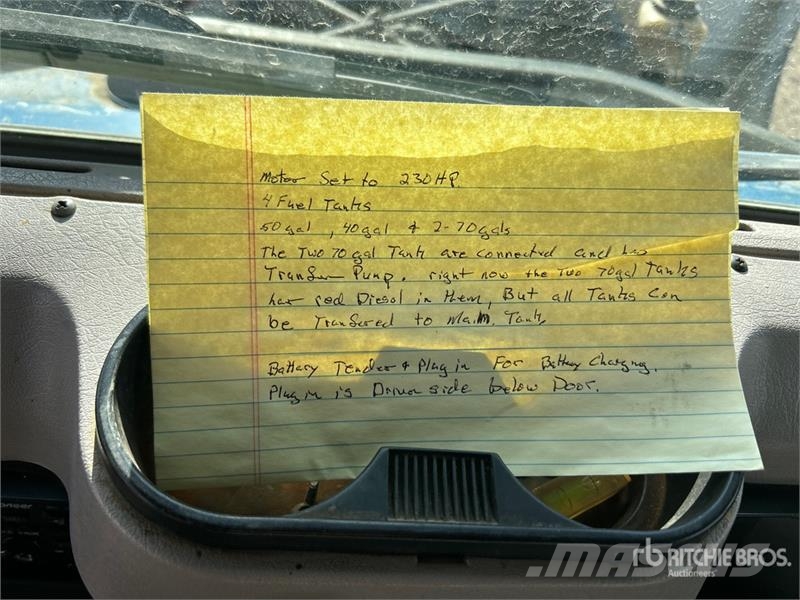 Motor Set to 230 HP.
4 Fuel Tanks
50 gal, 40 gal & 2-70 gals
The Two 70 gal Tank are connected and has
Transfer Pump. right now the Two 70 gal Tanks
has red Diesol in them, But all Tanks Can
be Transfered to Main Tank.
Battery Tender & Plug in For Battery Charging.
Plug in is Driver side below Door.
MASCUS
rb RITCHIE BROS.
Auctioneers